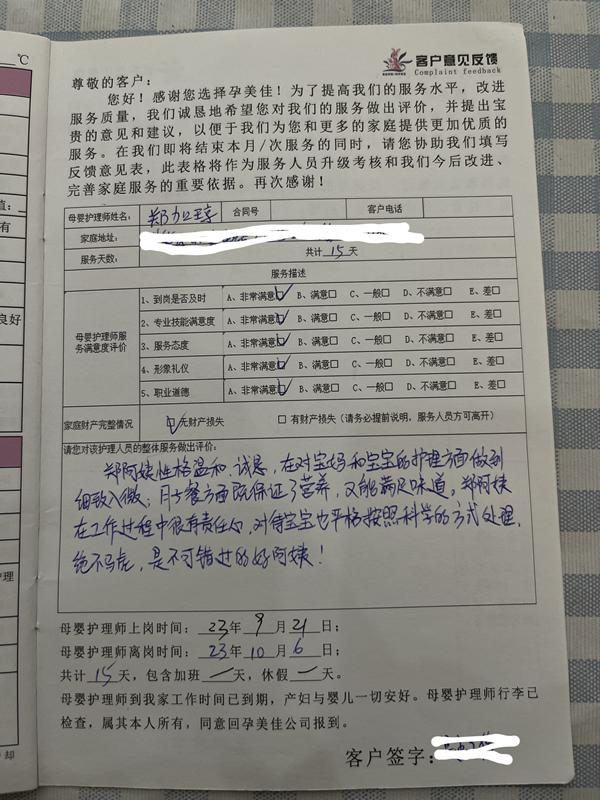 ℃
客户意见反馈
Complaint feedback
尊敬的客户：
您好！感谢您选择孕美佳！为了提高我们的服务水平，改进
服务质量，我们诚恳地希望您对我们的服务做出评价，并提出宝
贵的意见和建议，以便于我们为您和更多的家庭提供更加优质的
服务。在我们即将结束本月/次服务的同时，请您协助我们填写
反馈意见表，此表格将作为服务人员升级考核和我们今后改进、
完善家庭服务的重要依据。再次感谢！
母婴护理师姓名： 郑 合同号 客户电话
家庭地址：
服务天数： 共计 15 天
服务描述
母婴护理师服务满意度评价
1、到岗是否及时 A、非常满意☑ B、满意□ C、一般□ D、不满意□ E、差□
2、专业技能满意度 A、非常满意☑ B、满意□ C、一般□ D、不满意□ E、差□
3、服务态度 A、非常满意☑ B、满意□ C、一般□ D、不满意□ E、差□
4、形象礼仪 A、非常满意☑ B、满意□ C、一般□ D、不满意□ E、差□
5、职业道德 A、非常满意☑ B、满意□ C、一般□ D、不满意□ E、差□
家庭财产完整情况 ☑无财产损失 □有财产损失（请务必提前说明，服务人员方可离开）
请您对该护理人员的整体服务做出评价：
郑阿姨性格温和、诚恳，在对宝妈和宝宝的护理方面做到
细致入微；月子餐方面既保证了营养，又能满足味道。郑阿姨
在工作过程中很有责任心，对待宝宝也严格按照科学的方式处理，
绝不马虎，是不可错过的好阿姨！
母婴护理师上岗时间：23年 9 月 21 日；
母婴护理师离岗时间：23年 10 月 6 日；
共计 15 天，包含加班 一 天，休假 一 天。
母婴护理师到我家工作时间已到期，产妇与婴儿一切安好。母婴护理师行李已
检查，属其本人所有，同意回孕美佳公司报到。
客户签字：